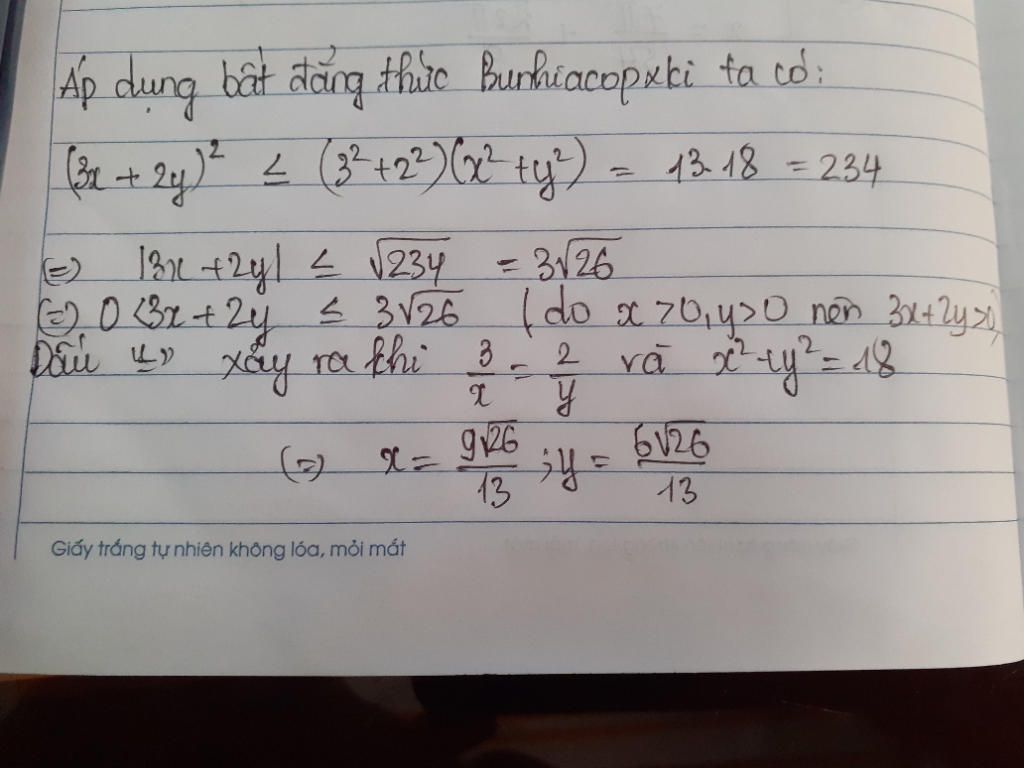 Áp dụng bất đẳng thức Bunhiacopxki ta có:
(3x + 2y)² ≤ (3² + 2²)(x² + y²) = 13.18 = 234
(=) |3x + 2y| ≤ √234 = 3√26
(=) 0 < 3x + 2y ≤ 3√26 (do x > 0, y > 0 nên 3x + 2y > 0)
Dấu "=" xảy ra khi 3/x = 2/y và x² + y² = 18
(=) x = 9√26/13 ; y = 6√26/13
Giấy trắng tự nhiên không lóa, mỏi mắt